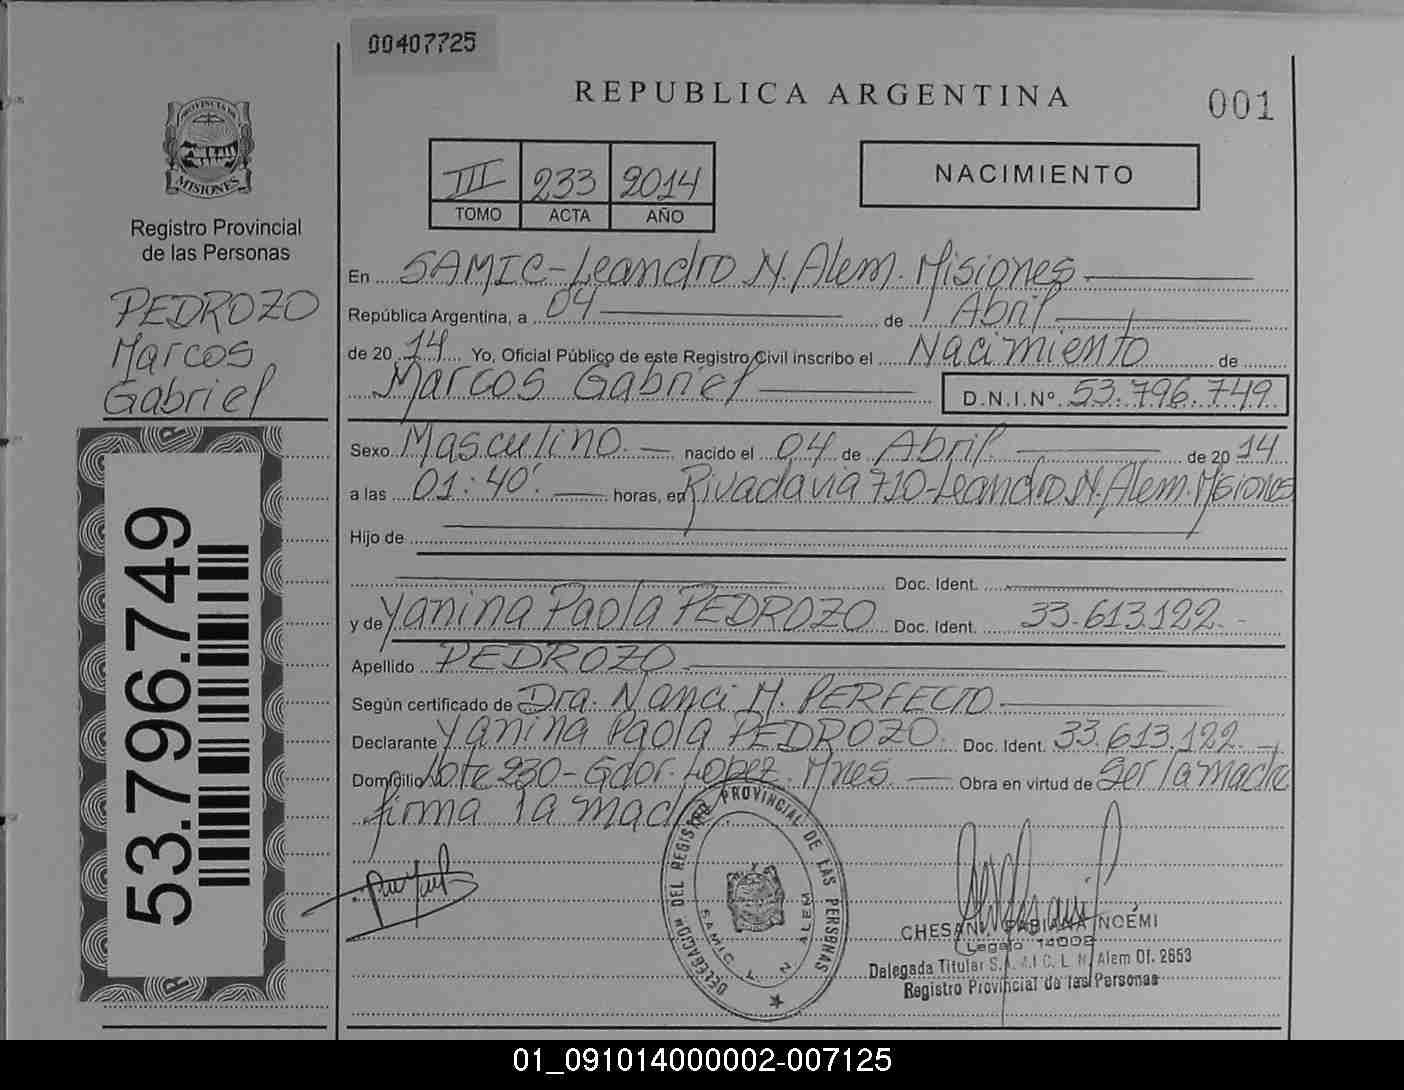 00407725
REPUBLICA ARGENTINA
001
PROVINCIA DE
MISIONES
Registro Provincial
de las Personas
PEDROZO
Marcos
Gabriel
III 233 2014
TOMO ACTA AÑO
NACIMIENTO
En SAMIC-Leandro N. Alem. Misiones
República Argentina, a 04 de Abril
de 20 14 Yo, Oficial Público de este Registro Civil inscribo el Nacimiento de
Marcos Gabriel D.N.I.Nº. 53.796.749
Sexo Masculino. nacido el 04 de Abril. de 20 14
a las 01:40' horas, en Rivadavia 710-Leandro N. Alem. Misiones
Hijo de
Doc. Ident.
y de Yanina Paola PEDROZO Doc. Ident. 33.613.122.-
Apellido PEDROZO
Según certificado de Dra. Nanci M. PERFECTO
Declarante Yanina Paola PEDROZO. Doc. Ident. 33.613.122.-
Domicilio Lote 230-Gdor. Lopez. Mnes. Obra en virtud de Ser la madre
firma la madre
53.796.749
DELEGACION DEL REGISTRO PROVINCIAL DE LAS PERSONAS
SAMIC L N ALEM
CHESANI FABIANA NOÉMI
Legajo 14002
Delegada Titular S.A.M.I.C. L. N. Alem Of. 2653
Registro Provincial de las Personas
01_091014000002-007125